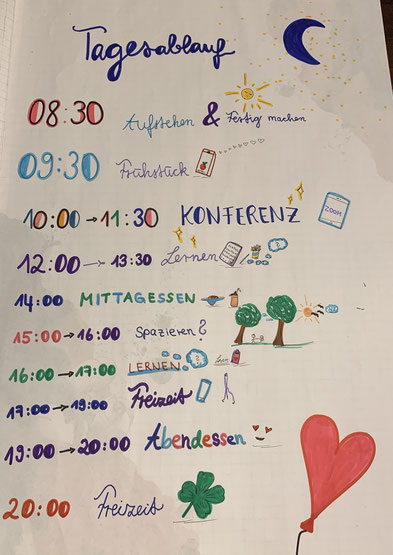 Tagesablauf
08:30 Aufstehen & Fertig machen
09:30 Frühstück
10:00 → 11:30 KONFERENZ ZOOM
12:00 → 13:30 Lernen
14:00 MITTAGESSEN
15:00 → 16:00 Spazieren?
16:00 → 17:00 LERNEN
17:00 → 19:00 Freizeit
19:00 → 20:00 Abendessen
20:00 Freizeit